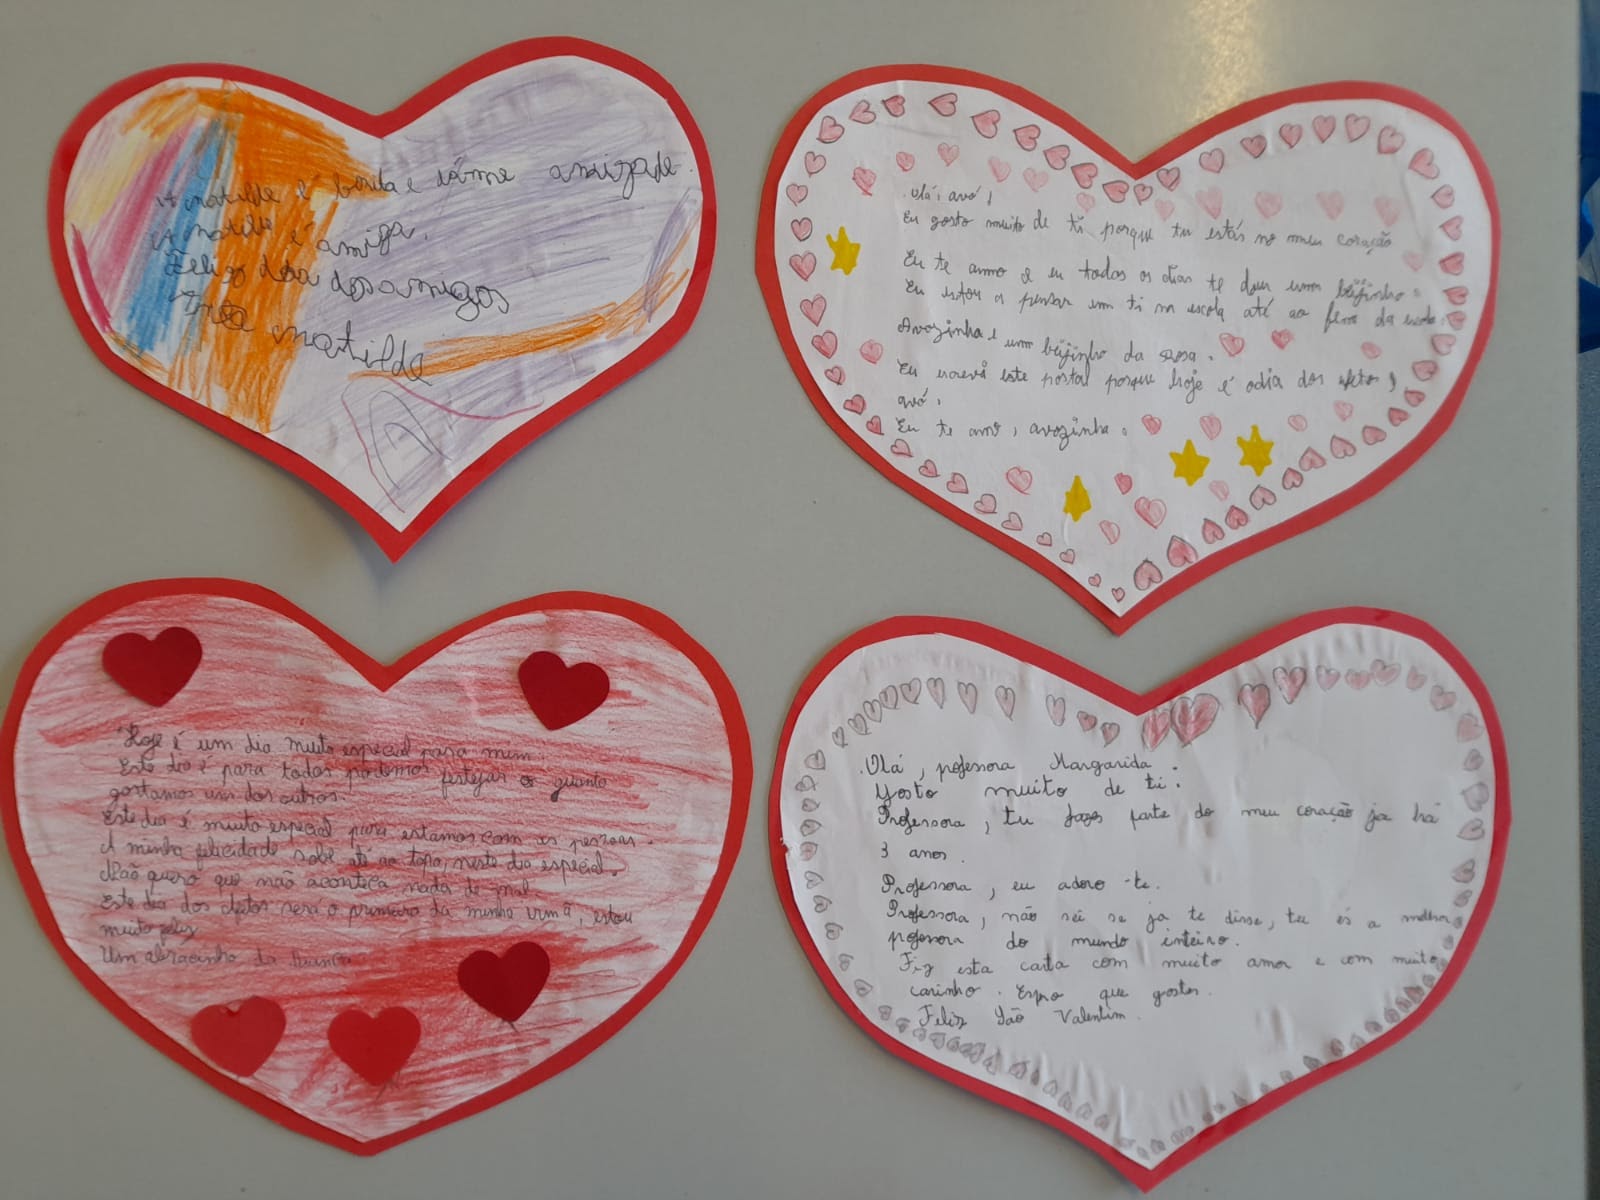 A matilde é bonita e amizade.
A matilde é amiga.
Feligo dia dos amigos
matilde
Olá, avó!
Eu gosto muito de ti porque tu estás no meu coração
Eu te amo e eu todos os dias te dou um beijinho.
Eu estou a pensar em ti na escola até ao fim da escola.
Avozinha e um beijinho da
Eu escrevi este postal porque hoje é o dia dos afetos,
avó.
Eu te amo, avozinha.
Hoje é um dia muito especial para mim.
Este dia é para todos podermos festejar o quanto
gostamos uns dos outros.
Este dia é muito especial para estamos com as pessoas.
A minha felicidade sobe até ao topo, neste dia especial.
Não quero que não aconteça nada de mal.
Este dia dos afetos será o primeiro da minha irmã, estou
muito feliz
Um abracinho da
Olá, professora Margarida.
Gosto muito de ti.
Professora, tu fazes parte do meu coração ja há
3 anos.
Professora, eu adoro-te.
Professora, não sei se ja te disse, tu és a melhor
professora do mundo inteiro.
Fiz esta carta com muito amor e com muito
carinho. Espro que gostes.
Feliz São Valentim.